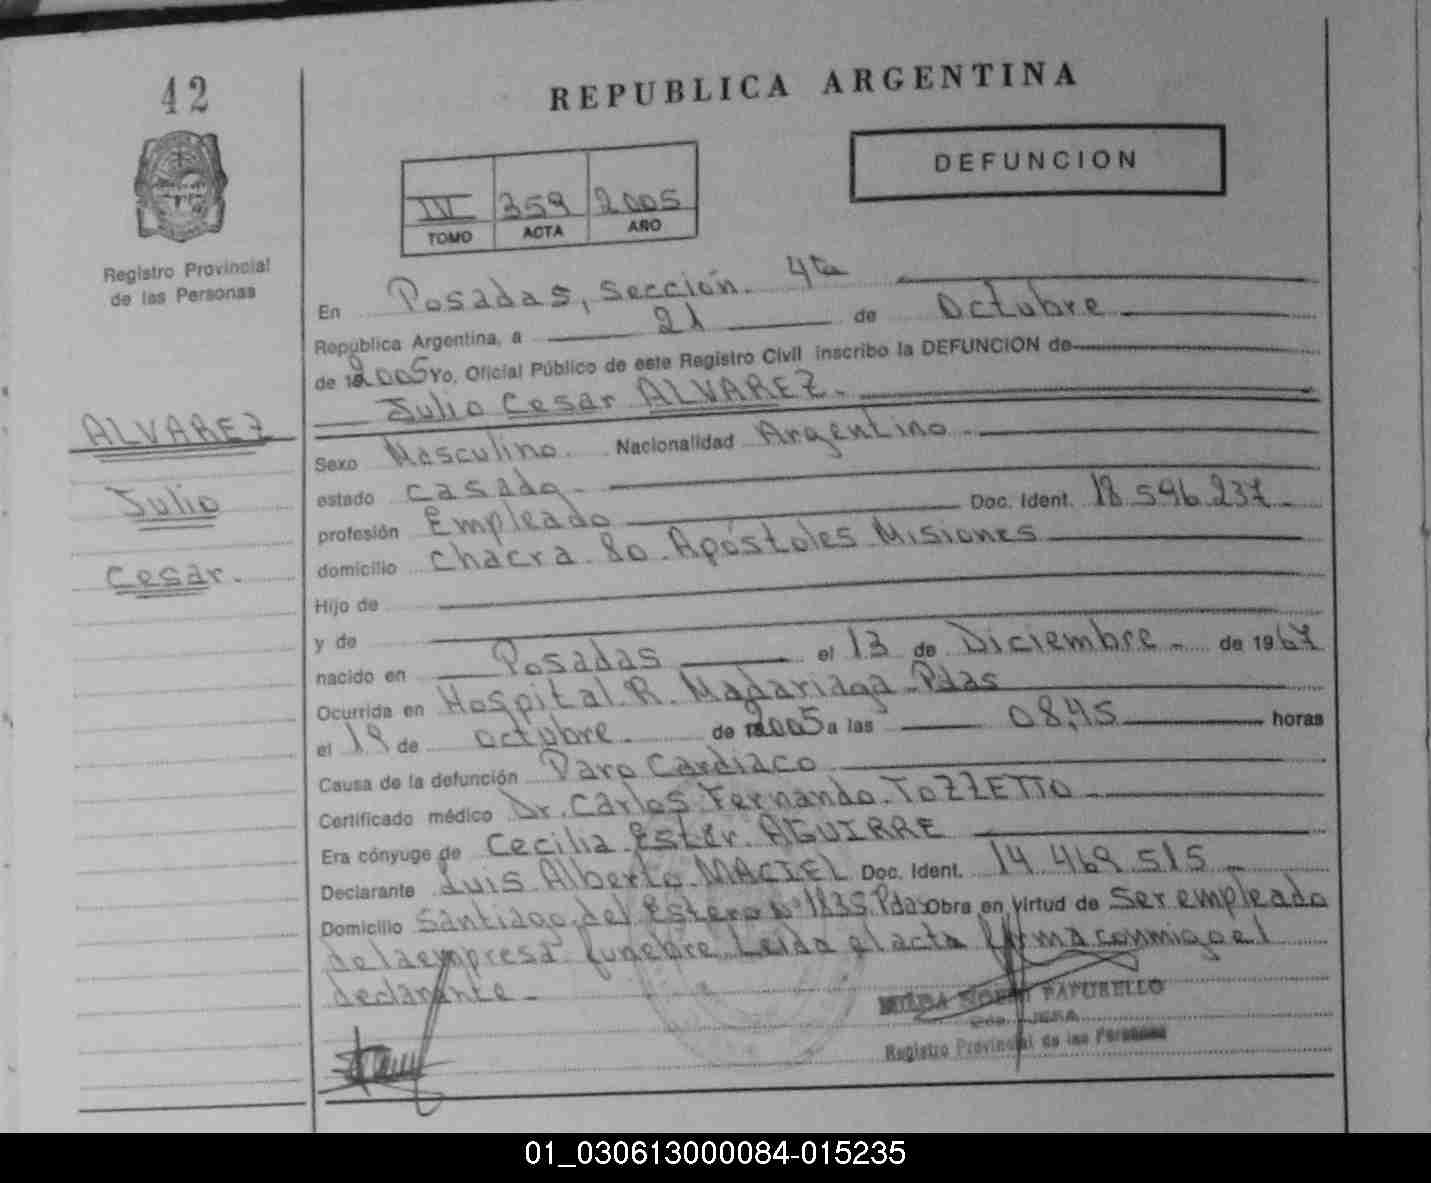 42
REPUBLICA ARGENTINA
DEFUNCION
IV 359 2005
TOMO ACTA AÑO
Registro Provincial
de las Personas
En Posadas, Sección 4ta
República Argentina, a 21 de Octubre
de 2005 yo, Oficial Público de este Registro Civil inscribo la DEFUNCION de
Julio Cesar ALVAREZ.
ALVAREZ
Julio
Cesar.
Sexo Masculino. Nacionalidad Argentino
estado casado
profesión Empleado Doc. Ident. 18.596.237
domicilio Chacra 80 Apóstoles Misiones
Hijo de
y de
nacido en Posadas el 13 de Diciembre de 1967
Ocurrida en Hospital R. Madariaga Pdas
el 19 de octubre de 2005 a las 08,45 horas
Causa de la defunción Paro Cardiaco
Certificado médico Dr. Carlos Fernando TOZZETTO
Era cónyuge de Cecilia Ester AGUIRRE
Declarante Luis Alberto MACIEL Doc. Ident. 14.469.515
Domicilio Santiago del Estero Nº 1835 Pdas Obra en virtud de Ser empleado
de la empresa funebre Leida el acta firma conmigo el
declarante
Registro Provincial de las Personas
01_030613000084-015235